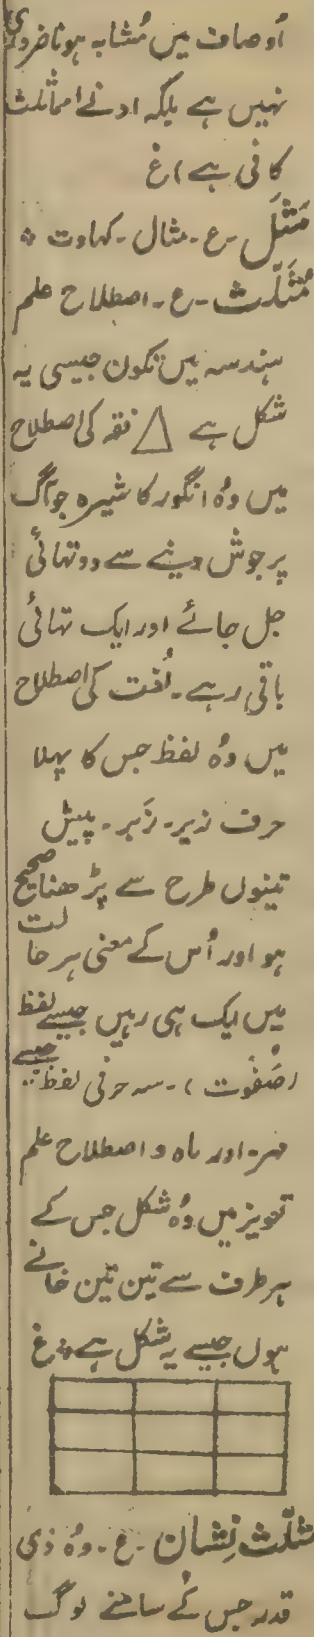 اُوصاف میں مُشابہ ہونا ضروری
نہیں ہے بلکہ ادنےٰ مماثلت
کافی ہے) غ
مَثَل ۔ ع ۔ مثال ۔ کہاوت ؞
مُثَلّث ۔ ع ۔ اصطلاح علم
ہندسہ میں تکون جیسی یہ
شکل ہے △ فقہ کی اصطلاح
میں وُہ انگور کا شیرہ جو آگ
پر جوش دینے سے دو تہائی
جل جائے اور ایک تہائی
باقی رہے ۔ لُغت کی اصطلاح
میں وُہ لفظ جس کا پہلا
حرف زیر ۔ زَبر ۔ پیش
تینوں طرح سے پڑھنا صحیح
ہو اور اُس کے معنی ہر حالت
میں ایک ہی رہیں جیسے لفظ
(صَُِفوت) ۔ سہ حرفی لفظ جیسے
مہر ۔ اور ماہ و اصطلاح علم
تعویز میں وُہ شکل جس کے
ہر طرف سے تین تین خانے
ہوں جیسے یہ شکل ہے ؞ غ
مثلّث نِشان ۔ ع ۔ وُہ ذی
قدر جس کے سامنے لوگ